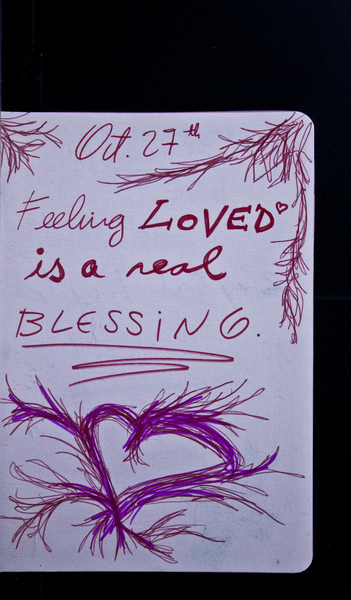 Oct. 27th
Feeling LOVED
is a real
BLESSING.